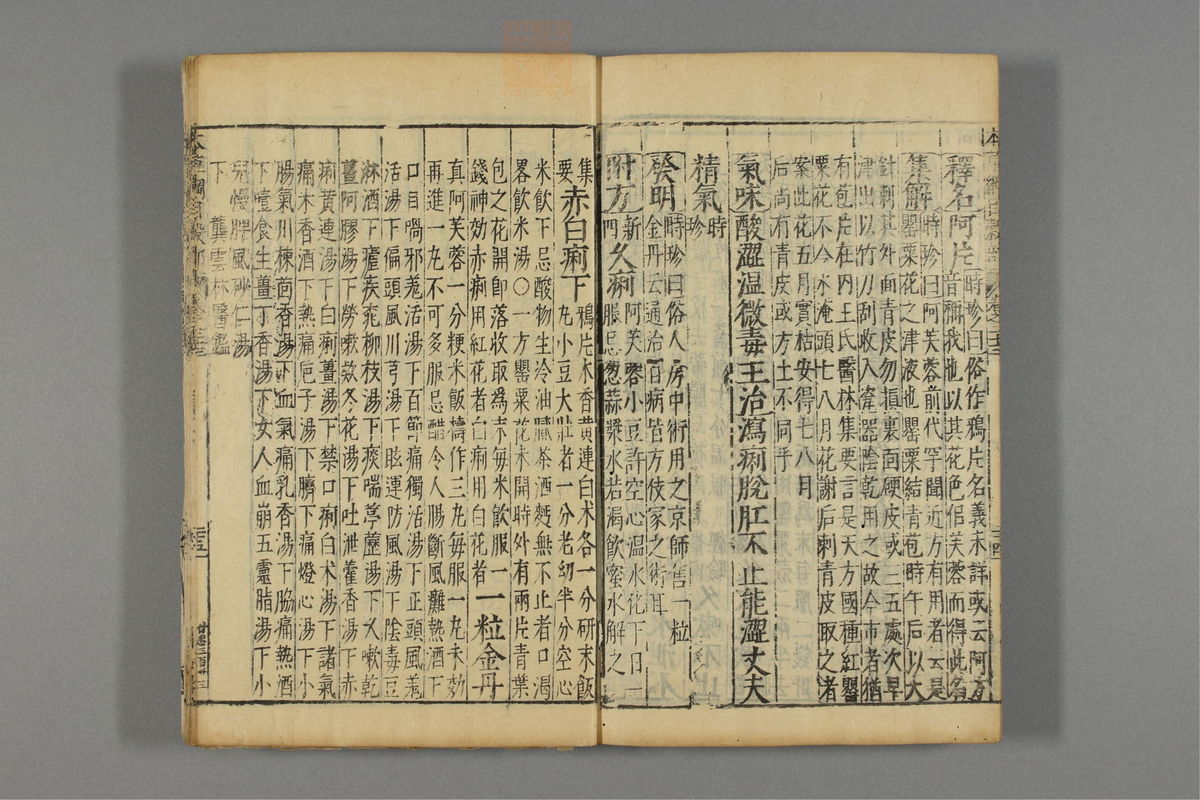 釋名阿片時珍曰俗作鴉片名義未詳或云阿方
音稱我也以其花色佀芙蓉而得此名
集解時珍曰阿芙蓉前代罕聞近方有用者云是
罌粟花之津液也罌粟結青苞時午后以大
針刺其外面青皮勿損裏面硬皮或三五處次早
津出以竹刀刮收入瓷器陰乾用之故今市者猶
有苞片在内王氏醫林集要言是天方國種紅罌
粟花不令水淹頭七八月花謝后刺青皮取之者
案此花五月實枯安得七八月
后尚有青皮或方土不同乎
氣味酸澀温微毒主治瀉痢脫肛不止能澀丈夫
精氣時珍
發明時珍曰俗人房中術用之京師售一粒
金丹云通治百病皆方伎家之術耳
附方新四久痢阿芙蓉小豆許空心温水化下日一
服忌葱蒜漿水若渴飲蜜水解之
集要赤白痢下鴉片木香黄連白术各一分研末飯
丸小豆大壯者一分老幼半分空心
米飲下忌酸物生冷油膩茶酒麪無不止者口渴
畧飲米湯○一方罌粟花未開時外有兩片青葉
包之花開即落收取爲末每米飲服一
錢神効赤痢用紅花者白痢用白花者一粒金丹
真阿芙蓉一分粳米飯擣作三丸每服一丸未効
再進一丸不可多服忌醋令人腸斷風癱熱酒下
口目喎邪羗活湯下百節痛獨活湯下正頭風羗
活湯下偏頭風川芎湯下眩運防風湯下陰毒豆
淋酒下瘧疾桃柳枝湯下痰喘葶藶湯下久嗽乾
薑阿膠湯下勞嗽欵冬花湯下吐泄藿香湯下赤
痢黄連湯下白痢薑湯下禁口痢白术湯下諸氣
痛木香酒下熱痛巵子湯下臍下痛燈心湯下小
腸氣川楝茴香湯下血氣痛乳香湯下脇痛熱酒
下噎食生薑丁香湯下女人血崩五靈脂湯下小
兒慢脾風砂仁湯
下 龔雲林醫鑑